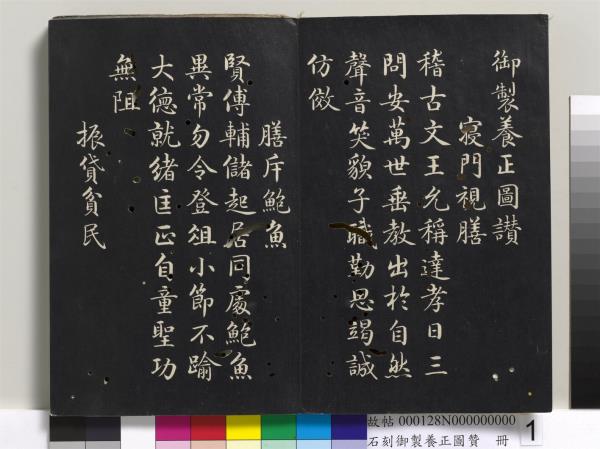 御製養正圖讃
寢門視膳
稽古文王允稱達孝日三
問安萬世垂教出於自然
聲音笑貌子職勤思竭誠
仿傚
膳斥鮑魚
賢傅輔儲起居同處鮑魚
異常勿令登俎小節不踰
大德就緒匡正自童聖功
無阻
振貸貧民
故帖 000128N000000000
石刻御製養正圖贊 冊
1